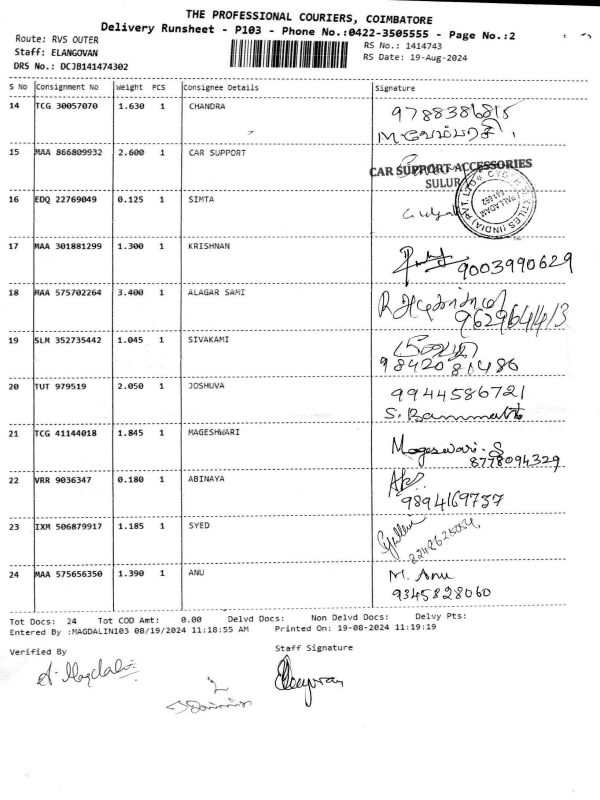 THE PROFESSIONAL COURIERS, COIMBATORE
Delivery Runsheet - P103 - Phone No.:0422-3505555 - Page No.:2
Route: RVS OUTER
RS No.: 1414743
Staff: ELANGOVAN
RS Date: 19-Aug-2024
DRS No.: DCJB141474302
S No Consignment No Weight PCS Consignee Details Signature
14 TCG 30057070 1.630 1 CHANDRA 9788386815
15 MAA 866809932 2.600 1 CAR SUPPORT CAR SUPPORT ACCESSORIES
SULUR
16 EDQ 22769049 0.125 1 SIMTA
17 MAA 301881299 1.300 1 KRISHNAN 9003990629
18 MAA 575702264 3.400 1 ALAGAR SAMI
9629644413
19 SLM 352735442 1.045 1 SIVAKAMI
9842081486
20 TUT 979519 2.050 1 JOSHUVA 9944586721
21 TCG 41144018 1.845 1 MAGESHWARI Mageswari. S
8778094329
22 VRR 9036347 0.180 1 ABINAYA
9894169737
23 IXM 506879917 1.185 1 SYED
24 MAA 575656350 1.390 1 ANU M. Anu
9345828060
Tot Docs: 24 Tot COD Amt: 0.00 Delvd Docs: Non Delvd Docs: Delvy Pts:
Entered By :MAGDALIN103 08/19/2024 11:18:55 AM Printed On: 19-08-2024 11:19:19
Verified By Staff Signature